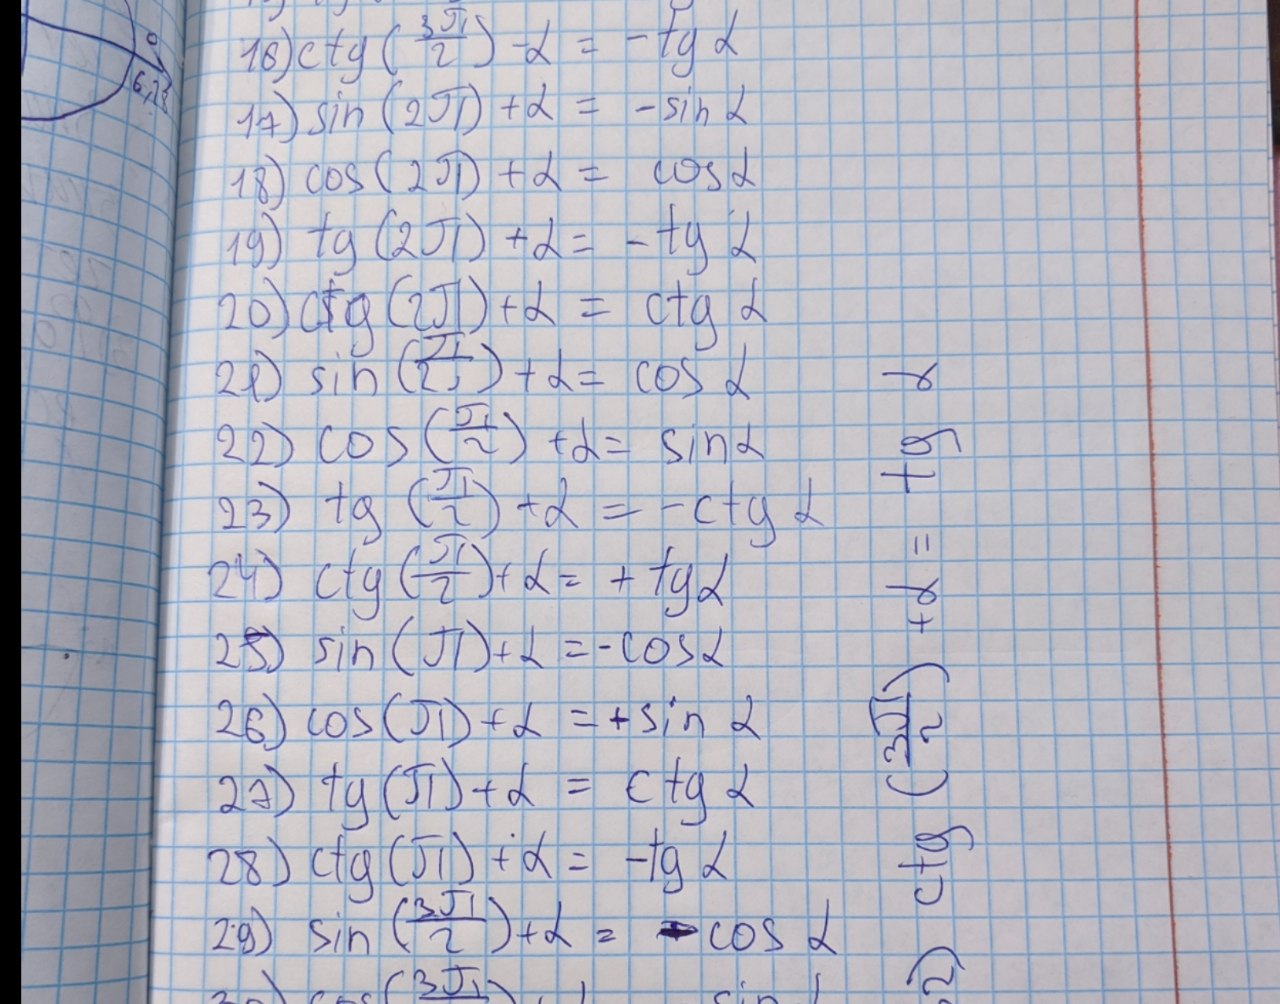 16) ctg (3π/2) - α = - tg α
17) sin (2π) + α = - sin α
18) cos (2π) + α = cos α
19) tg (2π) + α = - tg α
20) ctg (2π) + α = ctg α
21) sin (π/2) + α = cos α
22) cos (π/2) + α = sin α
23) tg (π/2) + α = - ctg α
24) ctg (π/2) + α = + tg α
25) sin (π) + α = - cos α
26) cos (π) + α = + sin α
27) tg (π) + α = ctg α
28) ctg (π) + α = - tg α
29) sin (3π/2) + α = - cos α
30) cos (3π/2) + α sin α
ctg (3π/2) + α = tg α
0
6,28